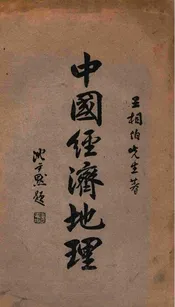 王相伯先生著
中國經濟地理
沈尹默題